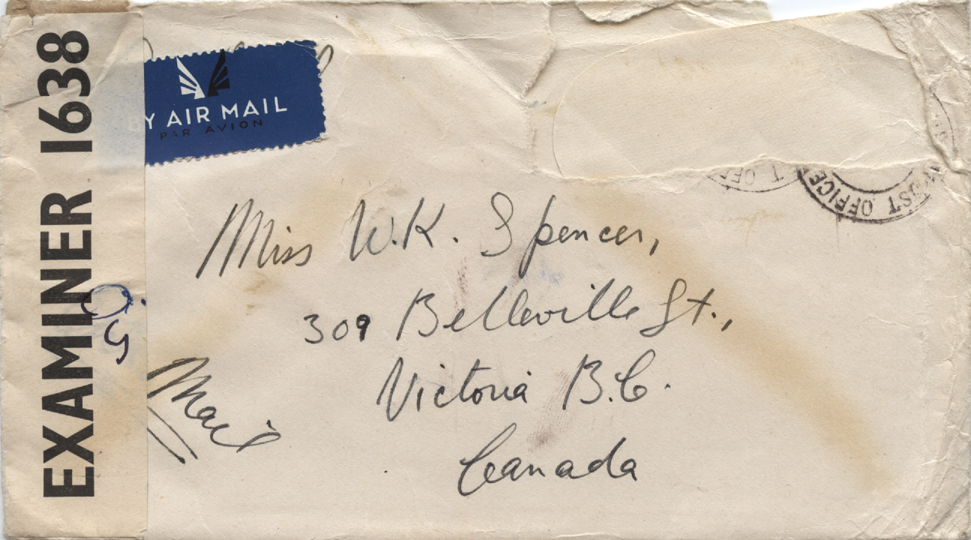 EXAMINER 1638
BY AIR MAIL
PAR AVION
POST OFFICE
Miss W.K. Spencer,
309 Belleville St.,
Victoria B.C.
Canada
Mail